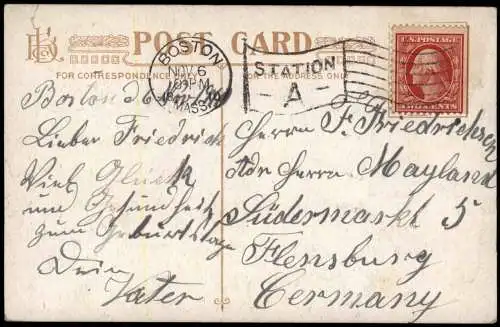 POST CARD
FOR CORRESPONDENCE
FOR THE ADDRESS ONLY
BOSTON
NOV 6
MASS.
STATION
A
U.S. POSTAGE
CENTS
Boston
Lieber Friedrich
Viel Glück
und Gesundheit
zum Geburtstage
Dein
Vater
Herrn F. Friedrichsen
Adr Herrn Mayland
Südermarkt 5
Flensburg
Germany